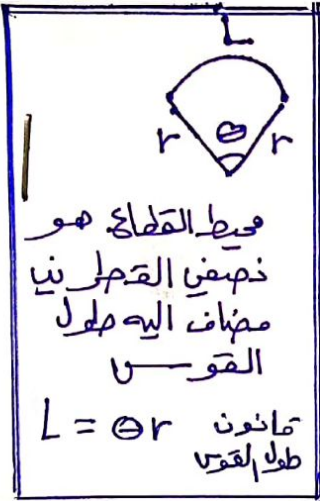 L
r θ r
محيط القطاع هو
نصفي القطر نيا
مضاف اليه طول
القوس
L = θr قانون
طول القوس